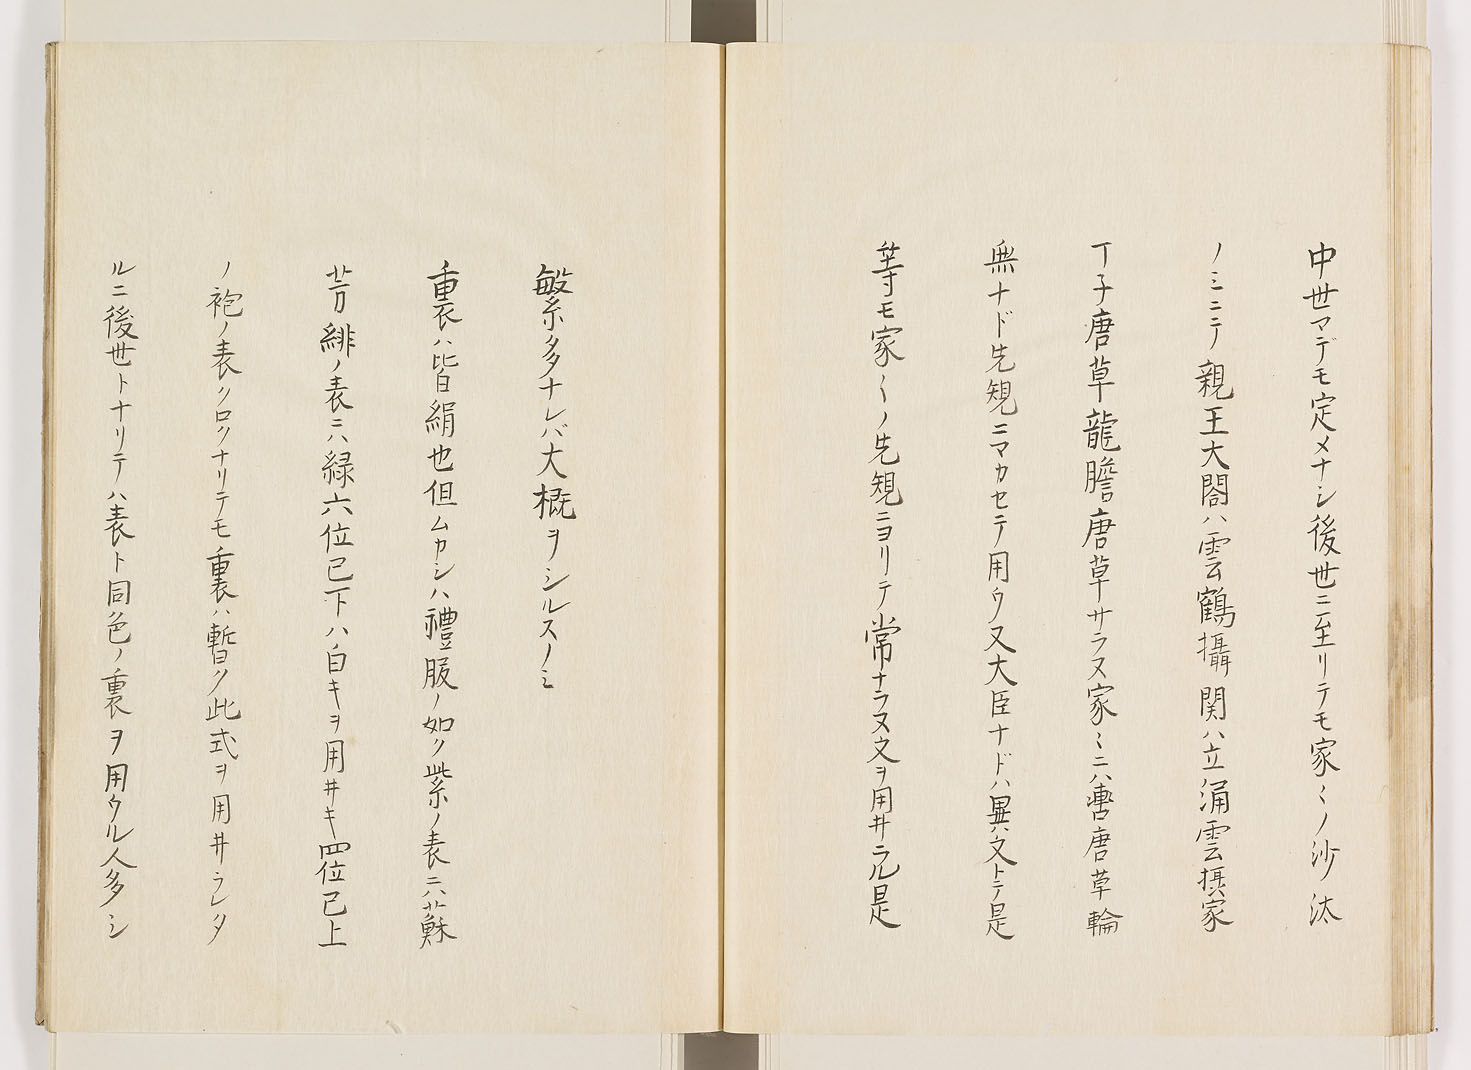 中世マデモ定メナシ後世ニ至リテモ家〻ノ沙汰
ノミニテ親王大閤ハ雲鶴攝関ハ立涌雲摂家
丁子唐草龍膽唐草サラヌ家〻ニハ轡唐草輪
無ナド先規ニマカセテ用ウ又大臣ナドハ異文トテ是
等モ家〻ノ先規ニヨリテ常ナラヌ文ヲ用井ラル是
繁多ナレバ大概ヲシルスノミ
裏ハ皆絹也但ムカシハ禮服ノ如ク紫ノ表ニハ蘇
芳緋ノ表ニハ緑六位已下ハ白キヲ用井キ四位已上
ノ袍ノ表クロクナリテモ裏ハ暫ク此式ヲ用井ラレタ
ルニ後世トナリテハ表ト同色ノ裏ヲ用ウル人多シ